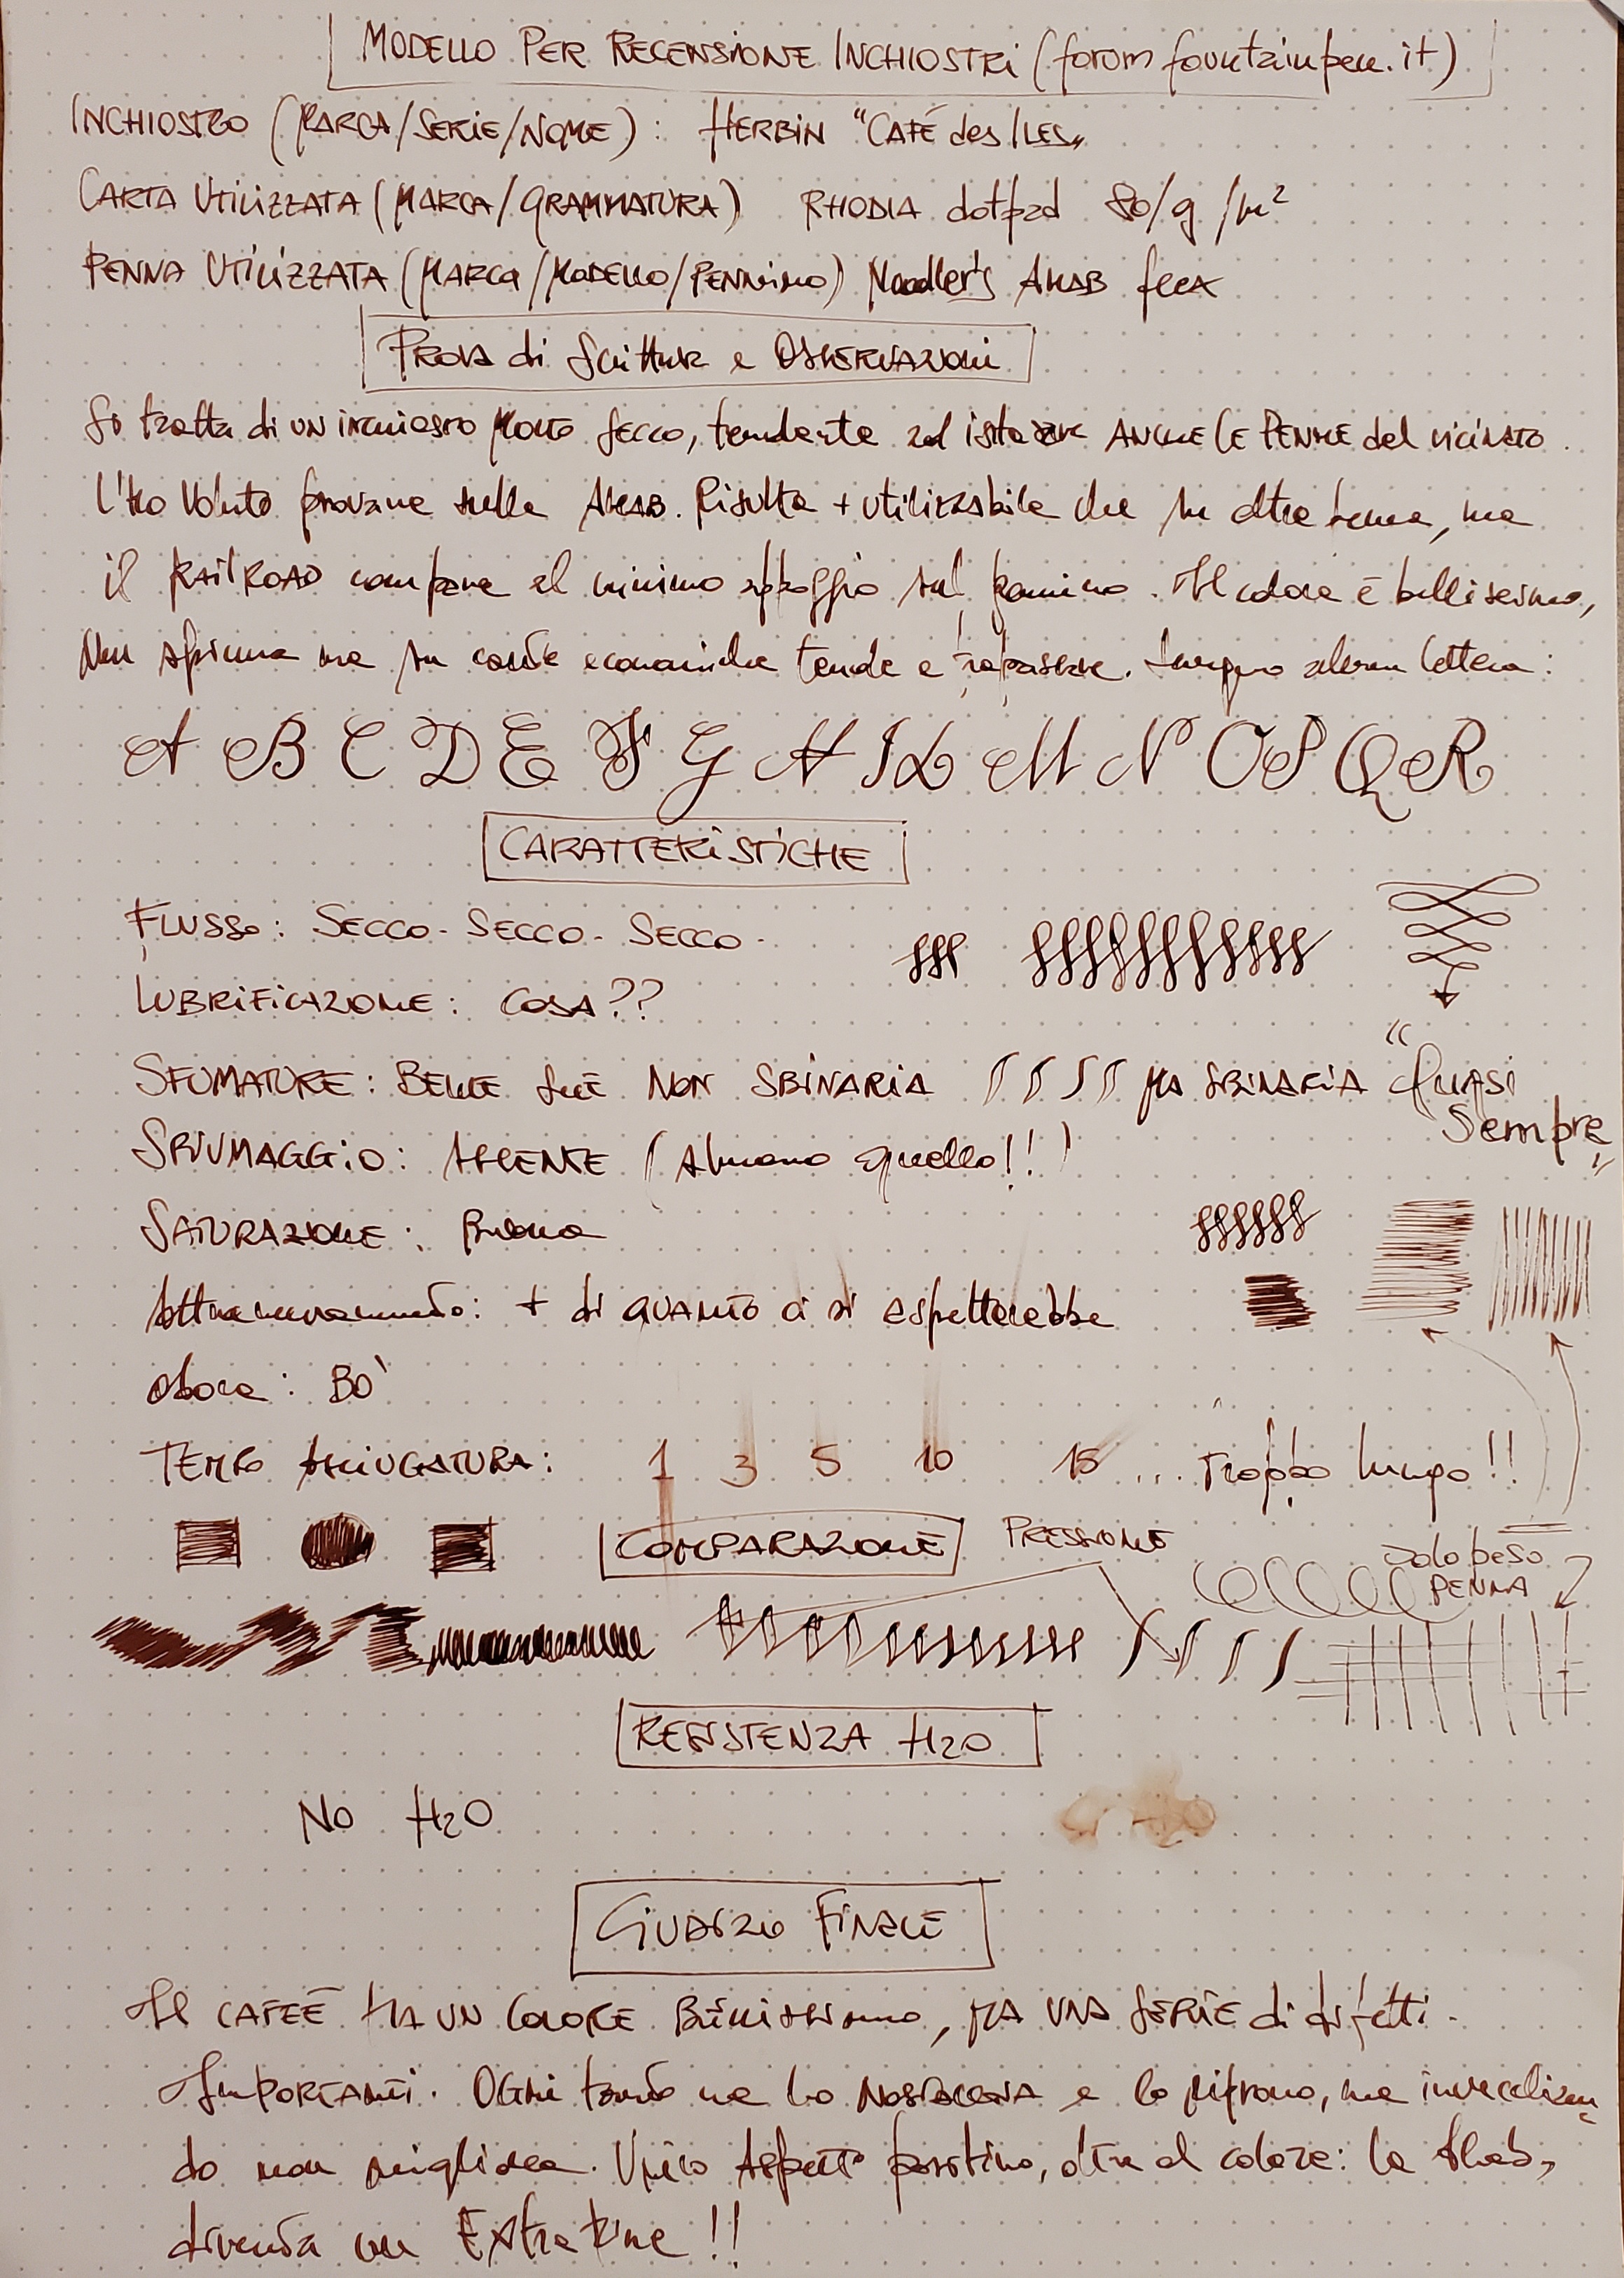 MODELLO PER RECENSIONE INCHIOSTRI (forum fountainpen.it)
INCHIOSTRO (MARCA/SERIE/NOME): HERBIN "CAFÉ des ILES"
CARTA UTILIZZATA (MARCA/GRAMMATURA) RHODIA dotpad 80/g/m²
PENNA UTILIZZATA (MARCA/MODELLO/PENNINO) Noodler's AHAB flex
PROVA di Scrittura e OSSERVAZIONI
Si tratta di un inchiostro MOLTO Secco, tendente ad ANCHE LE PENNE del VICINATO.
L'ho voluto provare sulla AHAB. Risulta + utilizzabile che in altre penne, ma
il RAILROAD compare al minimo appoggio sul pennino. Il colore è bellissimo,
Non spiuma ma su carte economiche tende a trapassare. Seguono alcune lettere:
A B C D E F G H I L M N O P Q R
CARATTERISTICHE
FLUSSO: SECCO - SECCO - SECCO -
LUBRIFICAZIONE: COSA??
SFUMATURE: BELLE SE NON SBINARIA MA SBINARIA "QUASI
Sempre"
SPIUMAGGIO: ASSENTE (Almeno quello!!)
SATURAZIONE: Buona
Attraversamento: + di QUANTO ci si aspetterebbe
odore: BO'
TEMPO ASCIUGATURA: 1 3 5 10 15 ... Troppo lungo!!
COMPARAZIONE PRESSIONE
Solo peso
PENNA
RESISTENZA H2O
NO H2O
GIUDIZIO FINALE
Il CAFEÉ HA UN COLORE BELLISSIMO, MA UNA SERIE di difetti
IMPORTANTI. OGNI tanto ne ho NOSTALGIA e lo riprovo, ma invecchian
do non migliora. Unico Aspetto positivo, oltre al colore: la Ahab,
diventa un Extra Fine!!